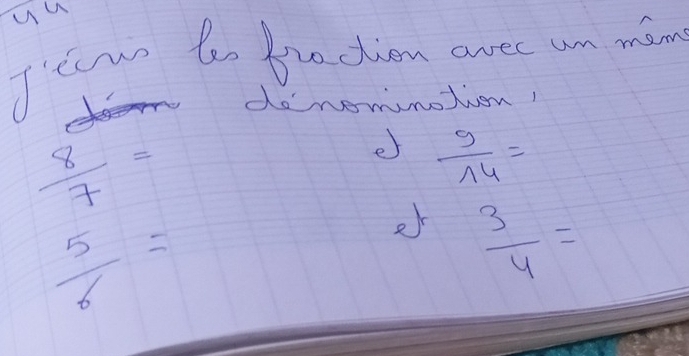 44
J'écris les fraction avec un même
dénomination,
8/7 = et 9/14 =
5/6 = et 3/4 =